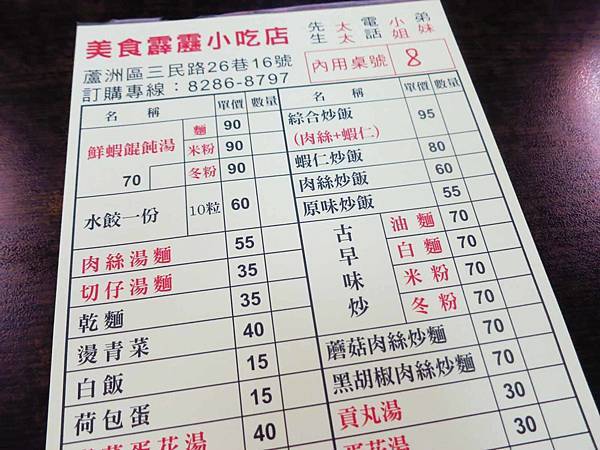 美食霹靂小吃店
先生 太太 電話 小姐 弟妹
蘆洲區三民路26巷16號
訂購專線：8286-8797
內用桌號 8
名稱 單價 數量
鮮蝦餛飩湯 70
麵 90
米粉 90
冬粉 90
水餃一份 10粒 60
肉絲湯麵 55
切仔湯麵 35
乾麵 35
燙青菜 40
白飯 15
荷包蛋 15
蛋花湯 40
名稱 單價 數量
綜合炒飯 95
(肉絲+蝦仁)
蝦仁炒飯 80
肉絲炒飯 60
原味炒飯 55
古早味炒
油麵 70
白麵 70
米粉 70
冬粉 70
蘑菇肉絲炒麵 70
黑胡椒肉絲炒麵 70
貢丸湯 30
蛋花湯 30